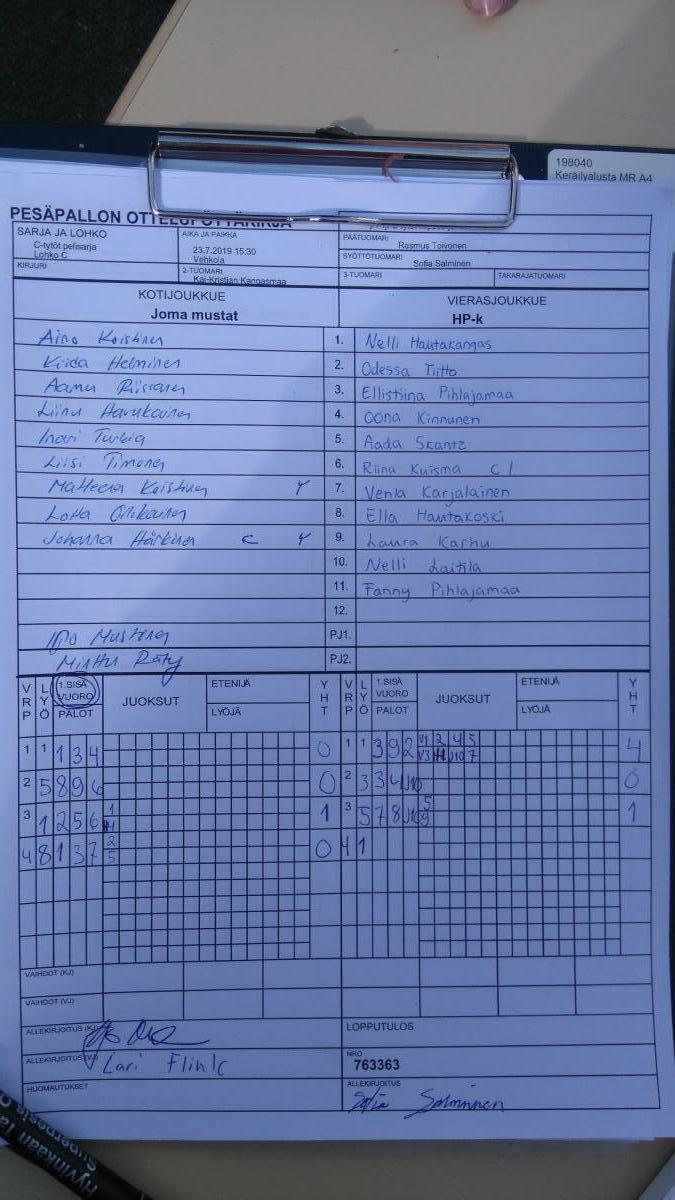 198040
Keräilyalusta MR A4
PESÄPALLON OTTELUPÖYTÄKIRJA
SARJA JA LOHKO
C-tytöt pelisarja
Lohko C
AIKA JA PAIKKA
23.7.2019 15:30
Vehkoja
PÄÄTUOMARI
Rasmus Toivonen
SYÖTTÖTUOMARI
Sofia Salminen
KIRJURI
2-TUOMARI
Kai-Kristian Kangasmaa
3-TUOMARI
TAKARAJATUOMARI
KOTIJOUKKUE
Joma mustat
VIERASJOUKKUE
HP-k
Aino Koistinen 1. Nelli Hautakangas
Helminen 2. Odessa Tiitto
Aamu 3. Ellistiina Pihlajamaa
4. Oona Kinnunen
Inari 5. Aada Skantz
Liisi Timonen 6. Riina Kuisma C /
Koistinen Y 7. Venla Karjalainen
Lotta 8. Ella Hautakoski
Johanna Härkinen C Y 9. Laura Karhu
10. Nelli Laitila
11. Fanny Pihlajamaa
12.
Mustinen PJ1.
Minttu Räty PJ2.
VRP LYÖ 1.SISÄ VUORO PALOT JUOKSUT ETENIJÄ LYÖJÄ YHT VRP LYÖ 1.SISÄ VUORO PALOT JUOKSUT ETENIJÄ LYÖJÄ YHT
1 1 1 3 4 0 1 1 3 9 2 V1 2 4 5 4
V3 J10 7
2 5 8 9 6 0 2 3 3 4 J10 0
3 1 2 5 6 1 1 3 5 7 8 J10 5 1
9
4 8 1 3 7 2 0 4 1
5
VAIHDOT (KJ)
VAIHDOT (VJ)
ALLEKIRJOITUS (KJ)
LOPPUTULOS
ALLEKIRJOITUS (VJ) Lari Flink
NRO
763363
HUOMAUTUKSET
ALLEKIRJOITUS
Sofia Salminen